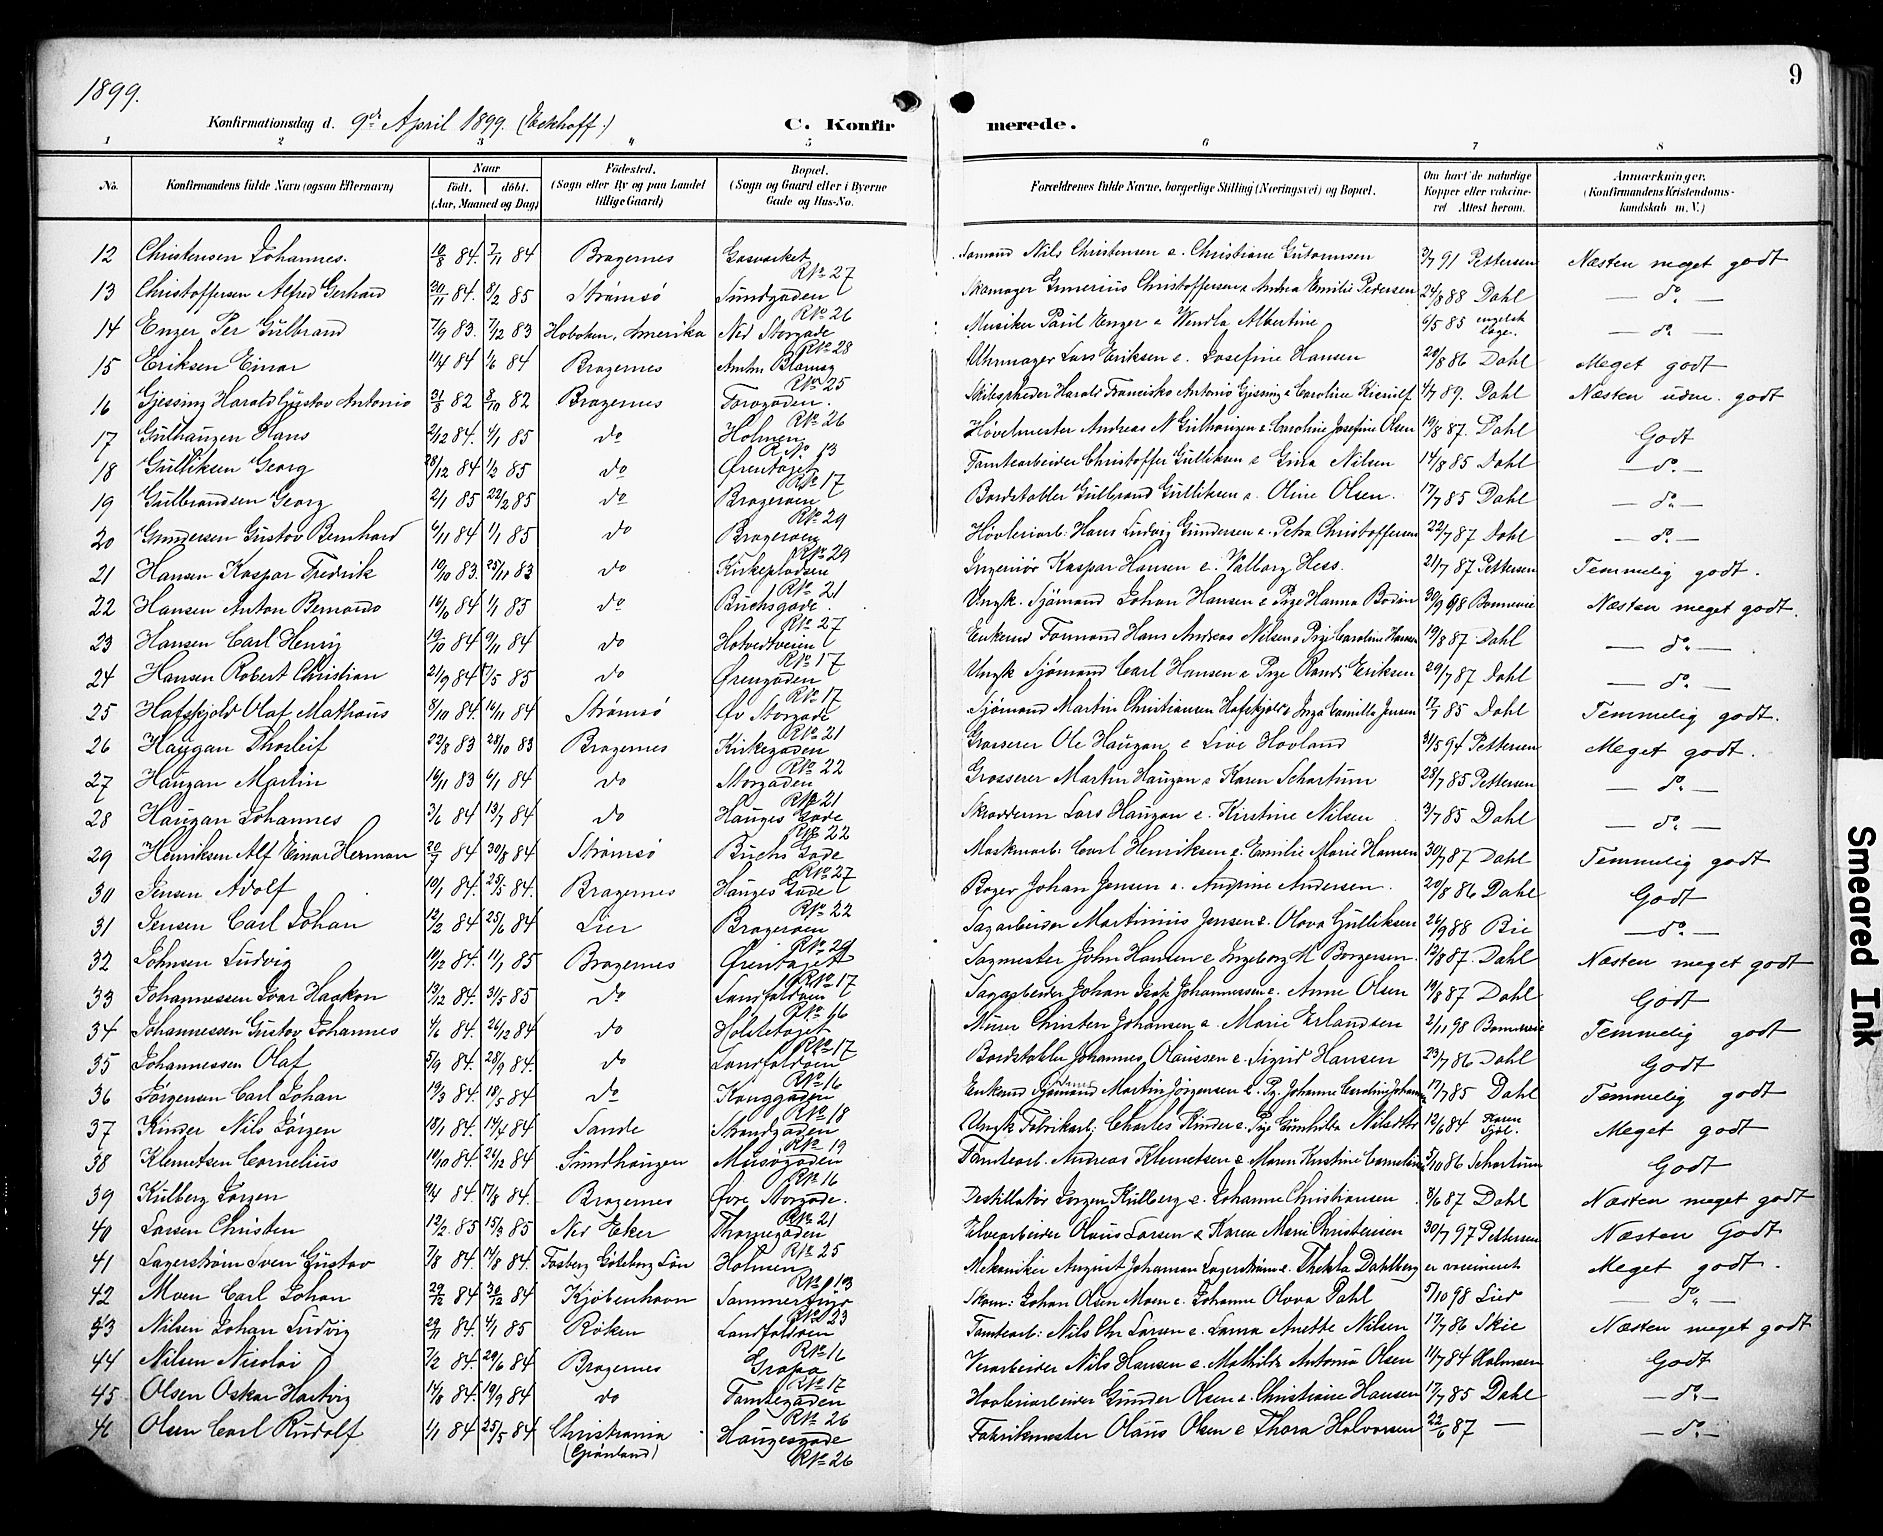 1899.
9
Konfirmationsdag d. 9de April 1899. (Eckhoff.)
C. Konfirmerede.
1 2 3 4 5 6 7 8
No. Konfirmandens fulde Navn (ogsaa Efternavn) Naar født. døbt. (Aar, Maaned og Dag) Fødested. (Sogn eller By og paa Landet tillige Gaard) Bopæl. (Sogn og Gaard eller i Byerne Gade og Hus-No. Forældrenes fulde Navne, borgerlige Stilling (Næringsvei) og Bopæl. Om havt de naturlige Kopper eller vaccineret Attest herom. Anmærkninger. (Konfirmandens Kristendomskundskab m. V.)
12 Christensen Johannes. 10/8 84. 7/11 84 Bragernes Gasværket R No 27 Nils Christensen e. Christiane 3/7 91 Pettersen Næsten meget godt
13 Christoffersen Alfred Gerhard 20/11 84. 8/2 85 Strømsø Sundgaden R No 26 Skomager Gunerius Christoffersen e Andrea Emilie Pedersen 24/8 88 Dahl — do —
14 Enger Per Gulbrand 7/9 83. 7/12 83 Hoboken, Amerika Ned Storgade R No 28 Musiker Paul Enger e Wendla Albertine 6/5 85 engelsk læge. — do —
15 Eriksen Einar 11/4 84 1/6 84 Bragernes R No 25 Uhrmager Lars Eriksen e. Josefine Hansen 20/8 86 Dahl Meget godt
16 Gjessing Harald Gustav Antonio 31/8 82 8/10 82 Bragernes Torvgaden. R No 26 Harald Francisko Antonio Gjessing e Caroline 4/7 89. Dahl Næsten udm. godt
17 Gulhaugen Hans 2/12 84. 4/1 85 do Holmen R No 13 Høvelmester Andreas N Gulhaugen e Caroline Josefine Olsen 19/8 87. Dahl Godt
18 Gulliksen Georg 28/12 84 1/2 85 do Ørentaget R No 17 Tomtearbeider Christoffer Gulliksen e Gina Nilsen 14/8 85 Dahl — do —
19 Gulbrandsen Georg 2/1 85 22/2 85 do Bragerøen R No 29 Bordstabler Gulbrand Gulliksen e. Oline Olsen. 17/7 85 Dahl — do —
20 Gundersen Gustav Bernhard 6/11 84 1/1 85 do Bragerøen R No 29 Høvleriarb. Hans Ludvig Gundersen e. Petra Christoffersen 22/7 87 Dahl — do —
21 Hansen Kaspar Fredrik 10/10 83. 25/11 83 do Kirkepladsen R No 21 Ingeniør Kaspar Hansen e. Valborg Hess. 21/7 87 Pettersen Temmelig godt.
22 Hansen Anton Bernardo 84 1/1 85 do Buchsgade. R No 27 Ungk. Sjømand Johan Hansen e Pige Hanna Bodin 30/9 98 Bonnevie Næsten meget godt.
23 Hansen Carl Henry 19/10 84 9/11 84 do Hotvedtveien R No 17 Enkemd Formand Hans Andreas Nilsen e Pige Caroline Hansen 19/8 87 Dahl — do —
24 Hansen Robert Christian 21/9 84 /5 85 do Ørengaden R No 17 Ungk Sjømand Carl Hansen e Pige Randi Eriksen 29/7 87 Dahl — do —
25 Hafskjold Olaf Mathæus 8/10 84. 16/11 84 Strømsø Øv Storgade R No 21 Sjømand Martin Christiansen Hafskjold e Inga Camilla Jensen 85 Dahl Temmelig godt.
26 Haugan Thorleif 22/8 83 28/10 83 Bragernes Kirkegaden R No 22 Grosserer Ole Haugan e Live Hovland 31/5 94 Pettersen Meget godt.
27 Haugan Martin 16/11 83 6/1 84 do Storgaden R No 21 Grosserer Martin Haugan e Karen Schartum 28/7 85 Pettersen — do —
28 Haugan Johannes 3/6 84 13/7 84 do Hauges Gade R No 22 Lars Haugan e. Kirstine Nilsen 3/7 85 Dahl — do —
29 Henriksen Alf Einar Herman 20/7 84 30/8 84 Strømsø Buchs Gade R No 27 Maskinarb. Carl Henriksen e. Emilie Marie Hansen 30/7 87 Dahl Temmelig godt
30 Jensen Adolf 10/1 84. 25/5 84. Bragernes Hauges Gade R No 22 Bager Johan Jensen e. Andersen. 20/8 86 Dahl Godt
31 Jensen Carl Johan 12/2 84 25/6 84 Lier Bragerøen R No 29 Sagarbeider Martinius Jensen e. Olava Gulliksen 26/9 88 Bie — do —
32 Johnsen Ludvig 10/12 84. 11/1 85 Bragernes Ørentaget R No 17 Sagmester John Hansen e Ingeborg M Borgersen. 12/8 87. Dahl Næsten meget godt
33 Johannessen Ivar Haakon 13/12 84. 31/5 85 do Landfaldøen R No 16 Sagarbeider Johan Isak Johannessen e. Anne Olsen 19/8 87 Dahl Godt
34 Johannessen Gustav Johannes 4/6 84. 26/12 84 do Holstetaget R No 17 Murer Christen Johansen e. Marie Erlandsen 2/11 98 Bonnevie Temmelig godt
35 Johannessen Olaf 5/9 84. 28/9 84. do Landfaldøen R No 16 Bordstabler Johannes Olaussen e. Sigrid Hansen 23/7 86 Dahl Godt
36 Jørgensen Carl Johan 19/3 84. 18/5 84 do Konggaden R No 18 Enkemd Sjømand Martin Jørgensen e. Pg. Johanne Caroline 17/7 85 Dahl Temmelig godt
37 Kinder Nils Jørgen 18/1 84. 14/4 84 Sande Strandgaden R No 19 Ungk Fabrikarb. Charles Kinder e. Pige Gunhilda Nilsdtr 12/6 84 Meget godt
38 Klemetsen Cornelius 10/10 84. 26/12 84 Sundhaugen R No 16 Tomtearb. Andreas Klemetsen e Maren Kristine 5/10 86 Schartum Godt
39 Kulberg Jørgen 9/4 84. 17/8 84. Bragernes Øvre Storgade. R No 21 Destillatør Jørgen Kulberg e. Johanne Christiansen 8/6 87 Dahl Næsten meget godt
40 Larsen Christen 12/2 85 15/3 85 Ned Eker Thornegaden R No 25 Elvearbeider Olaus Larsen e Karen Marie Christensen 30/7 97 Pettersen Næsten Godt
41 Lagerstrøm Sven Gustav 7/8 84. 14/8 84. Göteborg Län Holmen R No 13 Mekaniker August Johanson Lagerstrøm e. Thekla Dahlberg er vaccineret Meget godt.
42 Moen Carl Johan 29/12 84 30/12 84 Kjøbenhavn R No 23 Skom: Johan Olsen Moen e. Johanne Olava Dahl 5/10 98 Lier — do —
43 Nilsen Johan Ludvig 29/11 84. 4/1 85 Røken Landfaldøen R No 16 Tomtearb: Nils Chr Larsen e. Laura Anette Nilsen 17/7 86 Skie Næsten meget godt
44 Nilsen Nicolai 7/2 84. 29/6 84 Bragernes R No 17 Nils Hansen e. Mathilde Antonia Olsen 11/7 84 Holmsen Godt
45 Olsen Oskar Hartvig 84. 19/9 84 do Tomtegaden R No 26 Høvleriarbeider Gunder Olsen e. Christiane Hansen 17/7 85 Dahl — do —
46 Olsen Carl Rudolf 1/1 84 25/5 84 Christiania (Grønland) Haugesgade R No 26 Fabrikmester Olaus Olsen e Thora Halvorsen 22/6 87 — — do —
Smeared Ink